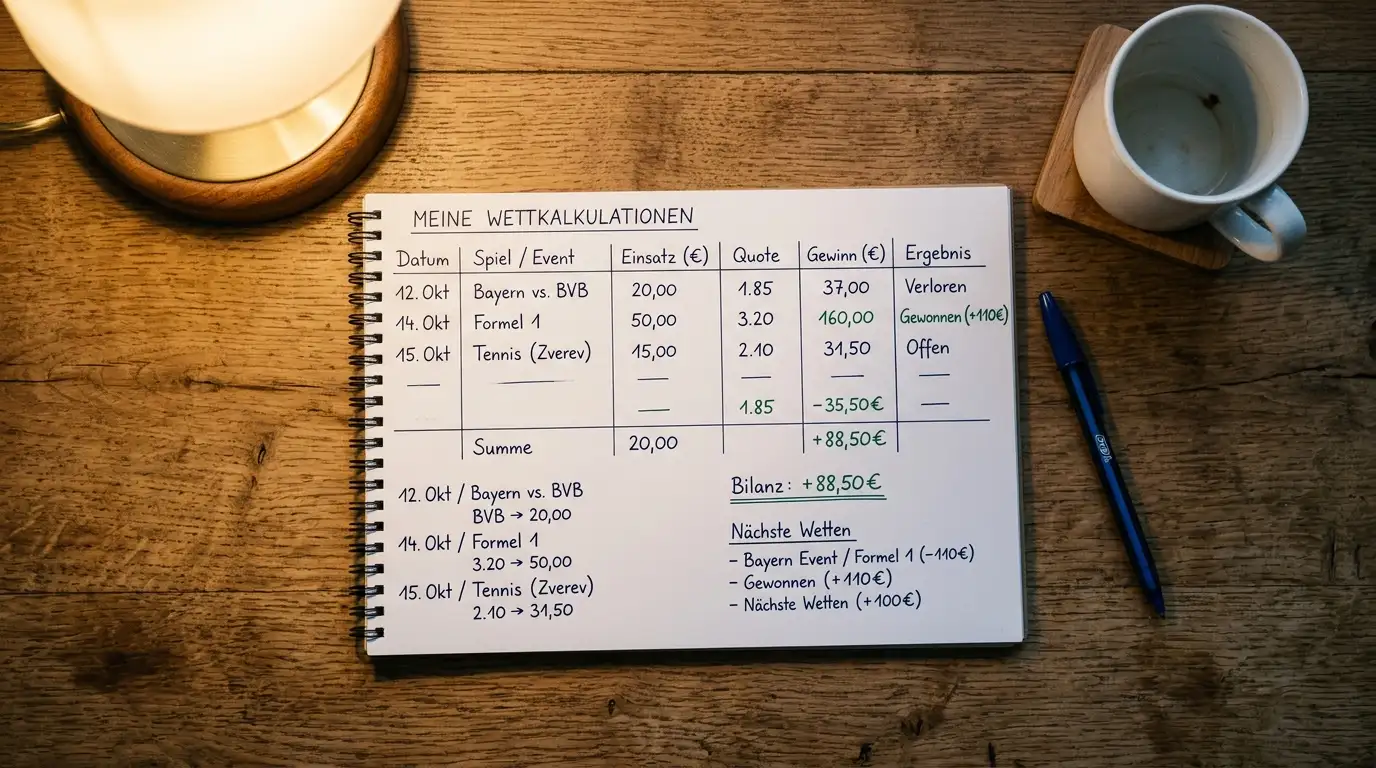 MEINE WETTKALKULATIONEN
Datum Spiel / Event Einsatz (€) Quote Gewinn (€) Ergebnis
12. Okt Bayern vs. BVB 20,00 1.85 37,00 Verloren
14. Okt Formel 1 50,00 3.20 160,00 Gewonnen (+110€)
15. Okt Tennis (Zverev) 15,00 2.10 31,50 Offen
— — — — — —
— 1.85 -35,50€ —
Summe 20,00 +88,50€
12. Okt / Bayern vs. BVB
BVB → 20,00
14. Okt / Formel 1
3.20 → 50,00
15. Okt / Tennis (Zverev)
2.10 → 31,50
Bilanz: +88,50€
Nächste Wetten
- Bayern Event / Formel 1 (-110€)
- Gewonnen (+110€)
- Nächste Wetten (+100€)